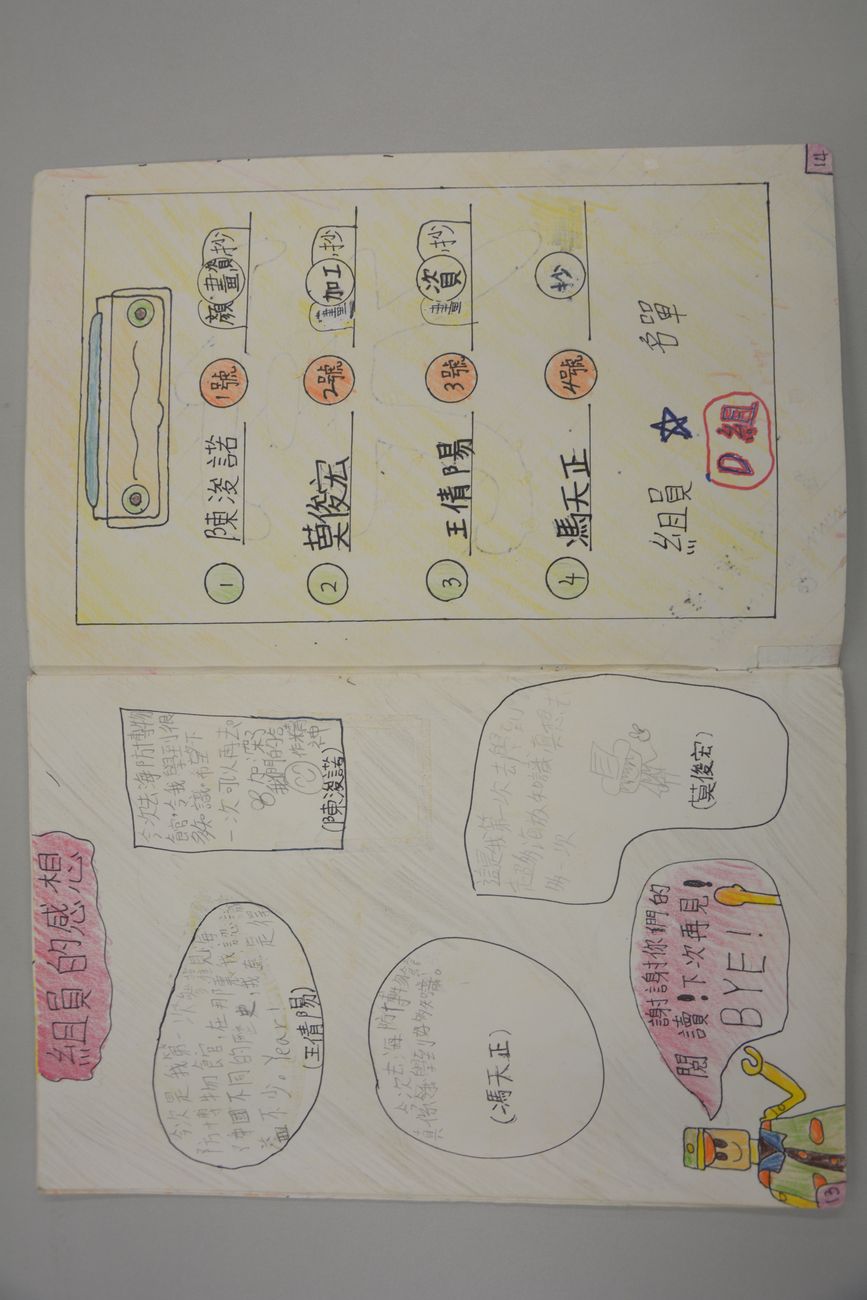 組員的感想
今次是我第一次參觀海
防博物館,在那裏我認識
中國不同的歷史,我真是得
益不少。Year!
(王倩陽)
今次去海防博物
館,令我學到很
多知識,希望下
一次可以再去。
我們的
作精
神
(陳浚諾)
今次去海防博物館
真係學到好多知識。
(馮天正)
這是我第一次去學到
超多海防知識真想去
多一次
(莫俊宏)
謝謝你們的
閱讀!下次再見!
BYE!
13
1 陳浚諾 1號 顏 畫 資 抄
2 莫俊宏 2號 畫 加工 抄
3 王倩陽 3號 畫 資 抄
4 馮天正 4號 抄
組員☆名單
D組
14